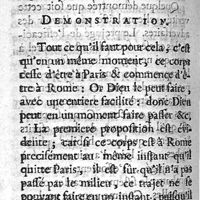 DEMONSTRATION.
Tout ce qu'il faut pour cela, c'est
qu'en un même moment, ce corps
cesse d'être à Paris & commence d'ê-
tre à Rome: Or Dieu le peut faire,
avec une entiere facilité: donc Dieu
peut en un moment faire passer &c.
La premiere proposition est évi-
dente; car si ce corps est à Rome
precisement au même instant qu'il
quitte Paris, il est sûr qu'il n'a pas
passé par le milieu, ce trajet ne se
pouvant faire en un instant, puisqu'il